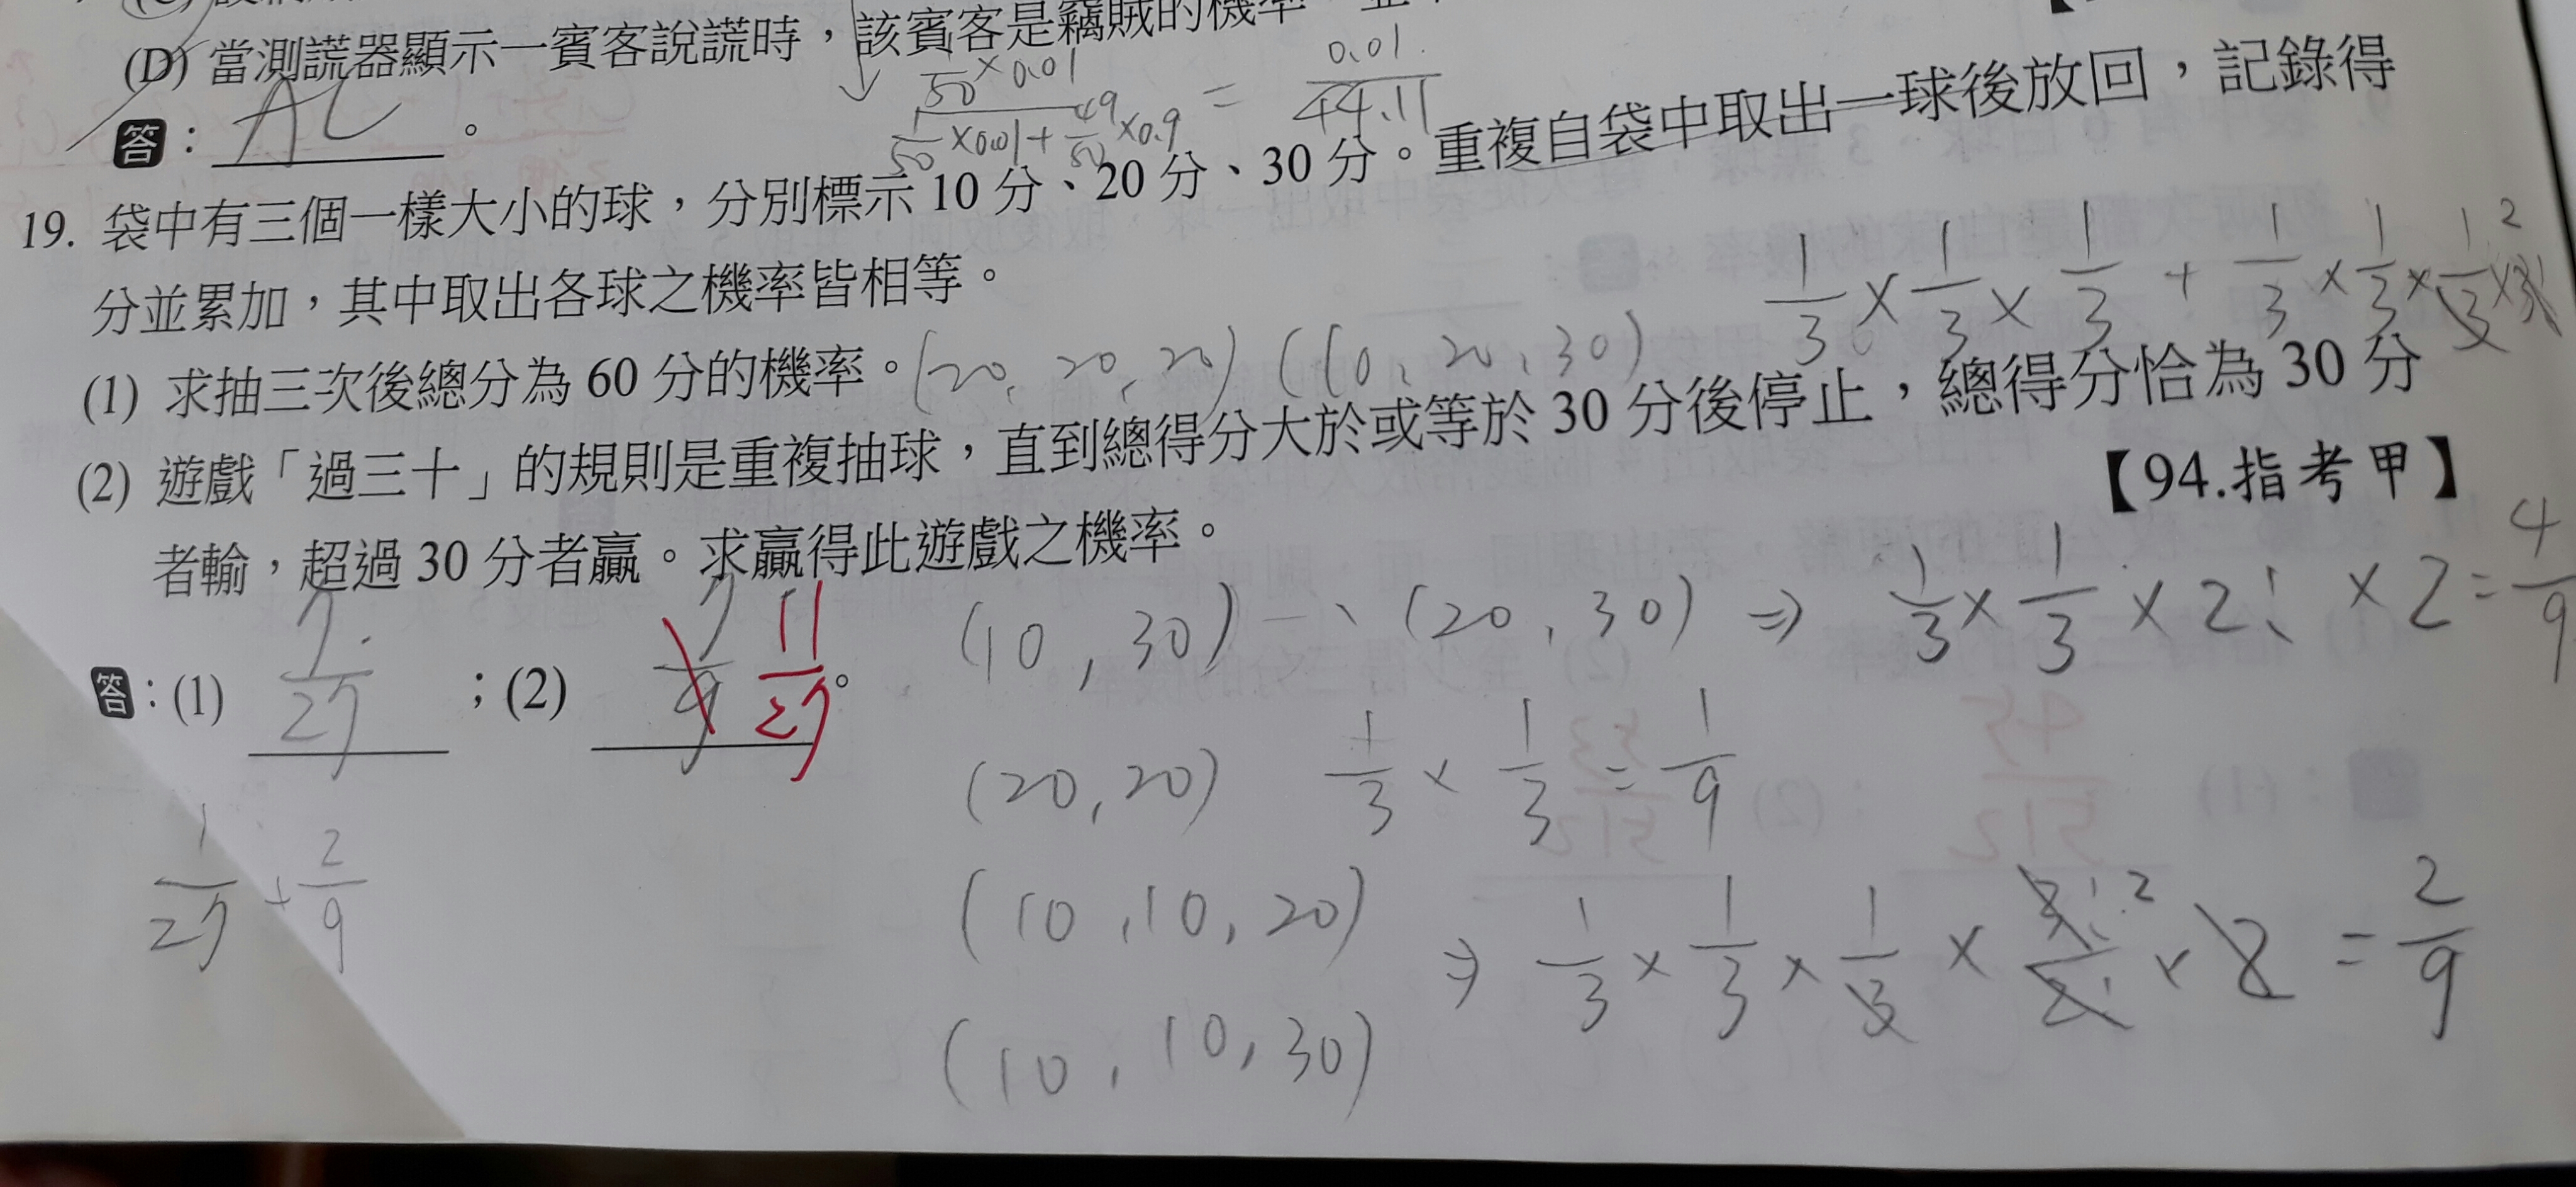 (D) 當測謊器顯示一賓客說謊時，該賓客是竊賊的機率
1/50 × 0.01 / (1/50 × 0.01 + 49/50 × 0.9) = 0.01 / 44.11
答：AC。
19. 袋中有三個一樣大小的球，分別標示 10 分、20 分、30 分。重複自袋中取出一球後放回，記錄得
分並累加，其中取出各球之機率皆相等。
1/3 × 1/3 × 1/3 + 1/3 × 1/3 × 1/3 × 3! 2
(1) 求抽三次後總分為 60 分的機率。(20, 20, 20) (10, 20, 30)
(2) 遊戲「過三十」的規則是重複抽球，直到總得分大於或等於 30 分後停止，總得分恰為 30 分
者輸，超過 30 分者贏。求贏得此遊戲之機率。
【94.指考甲】
答：(1) 7/27 ；(2) 7/9 11/27。
(10, 30)、(20, 30) ⇒ 1/3 × 1/3 × 2! × 2 = 4/9
(20, 20) 1/3 × 1/3 = 1/9
1/27 + 2/9
(10, 10, 20)
⇒ 1/3 × 1/3 × 1/3 × 3!/2! × 2 = 2/9
(10, 10, 30)